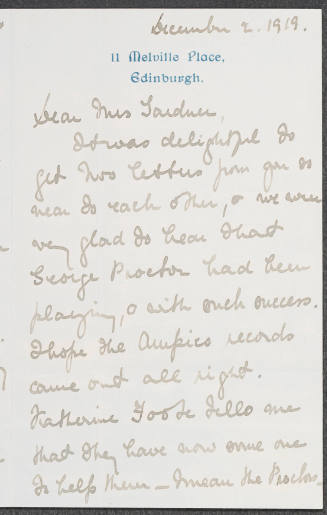 December 2. 1919.
11 Melville Place,
Edinburgh.
Dear Mrs Gardner,
It was delightful to
get two letters from you so
near to each other, & we were
very glad to hear that
George Proctor had been
playing, & with such success.
I hope the Ampico records
came out all right.
Katherine Foote tells me
that they have now some one
to help them – I mean the Proctors–